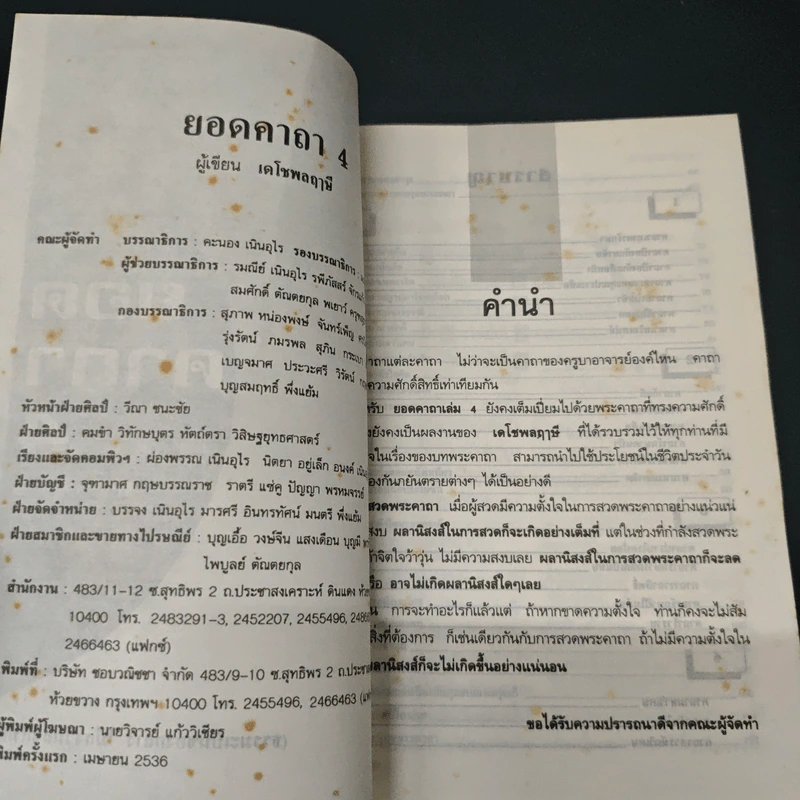 ยอดคาถา 4
ผู้เขียน เดโชพลฤาษี
คณะผู้จัดทำ บรรณาธิการ : คะนอง เนินอุไร รองบรรณาธิการ :
ผู้ช่วยบรรณาธิการ : รมณีย์ เนินอุไร รพีภัสสร์
สมศักดิ์ ตัณตยกุล พเยาว์
กองบรรณาธิการ : สุภาพ หน่องพงษ์ จันทร์เพ็ญ
รุ่งรัตน์ ภมรพล สุภิน
เบญจมาศ ประวะศรี วิรัตน์
บุญสมฤทธิ์ พึ่งแย้ม
หัวหน้าฝ่ายศิลป์ : วีณา ชนะชัย
ฝ่ายศิลป์ : คมขำ วิทักษบุตร หัตถ์ตรา วิสิษฐยุทธศาสตร์
เรียงและจัดคอมพิวฯ : ผ่องพรรณ เนินอุไร นิตยา อยู่เล็ก อนงค์
ฝ่ายบัญชี : จุฑามาศ กฤษบรรณราช ราตรี แซ่คู ปัญญา พรหมจรรย์
ฝ่ายจัดจำหน่าย : บรรจง เนินอุไร มารศรี อินทรทัศน์ มนตรี พึ่งแย้ม
ฝ่ายสมาชิกและขายทางไปรษณีย์ : บุญเอื้อ วงษ์จีน แสงเดือน
ไพบูลย์ ตัณตยกุล
สำนักงาน : 483/11-12 ซ.สุทธิพร 2 ถ.ประชาสงเคราะห์ ดินแดง
10400 โทร. 2483291-3, 2452207, 2455496,
2466463 (แฟกซ์)
พิมพ์ที่ : บริษัท ชอบวณิชชา จำกัด 483/9-10 ซ.สุทธิพร 2
ห้วยขวาง กรุงเทพฯ 10400 โทร. 2455496, 2466463
ผู้พิมพ์ผู้โฆษณา : นายวิจารย์ แก้ววิเชียร
พิมพ์ครั้งแรก : เมษายน 2536
คำนำ
คาถาแต่ละคาถา ไม่ว่าจะเป็นคาถาของครูบาอาจารย์องค์ไหน คาถา
ความศักดิ์สิทธิ์เท่าเทียมกัน
ยอดคาถาเล่ม 4 ยังคงเต็มเปี่ยมไปด้วยพระคาถาที่ทรงความศักดิ์
ยังคงเป็นผลงานของ เดโชพลฤาษี ที่ได้รวบรวมไว้ให้ทุกท่านที่มี
ในเรื่องของบทพระคาถา สามารถนำไปใช้ประโยชน์ในชีวิตประจำวัน
ป้องกันภยันตรายต่างๆ ได้เป็นอย่างดี
สวดพระคาถา เมื่อผู้สวดมีความตั้งใจในการสวดพระคาถาอย่างแน่วแน่
ผลานิสงส์ในการสวดก็จะเกิดอย่างเต็มที่ แต่ในช่วงที่กำลังสวดพระ
จิตใจว้าวุ่น ไม่มีความสงบเลย ผลานิสงส์ในการสวดพระคาถาก็จะลด
อาจไม่เกิดผลานิสงส์ใดๆเลย
การจะทำอะไรก็แล้วแต่ ถ้าหากขาดความตั้งใจ ท่านก็คงจะไม่สม
สิ่งที่ต้องการ ก็เช่นเดียวกันกับการสวดพระคาถา ถ้าไม่มีความตั้งใจใน
ผลานิสงส์ก็จะไม่เกิดขึ้นอย่างแน่นอน
ขอได้รับความปรารถนาดีจากคณะผู้จัดทำ